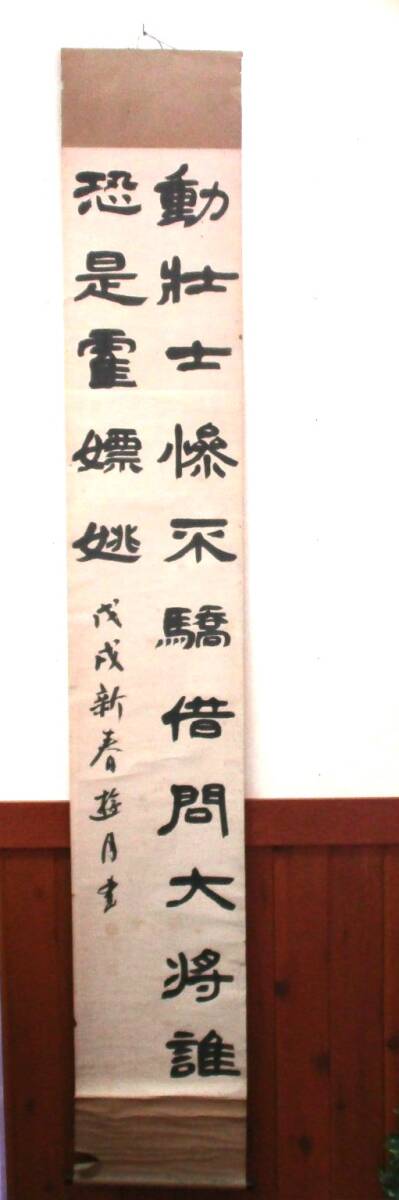 動壯士慘不驕借問大將誰
恐是霍嫖姚
戊戌新春游月書